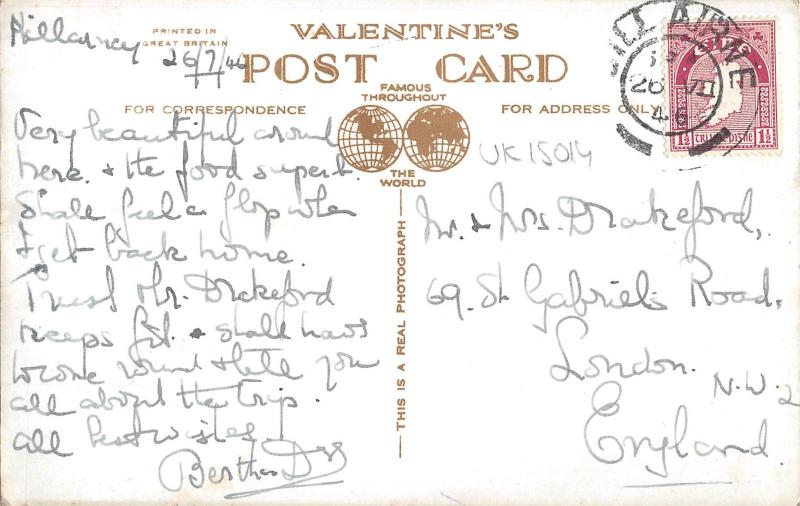 Killarney
26/7/46
PRINTED IN
GREAT BRITAIN
VALENTINE'S
POST CARD
FAMOUS
THROUGHOUT
THE
WORLD
FOR CORRESPONDENCE
FOR ADDRESS ONLY
Very beautiful around
here. & the food superb.
Shall feel a flop when
I get back home.
Trust Mr. Drakeford
keeps fit. & shall have
to come round & tell you
all about the trip.
All best wishes
Bertha
THIS IS A REAL PHOTOGRAPH
UK15014
26 VII
46
1½ 1½
Mr. & Mrs. Drakeford,
69. St Gabriel's Road,
London.
N.W.2
England.